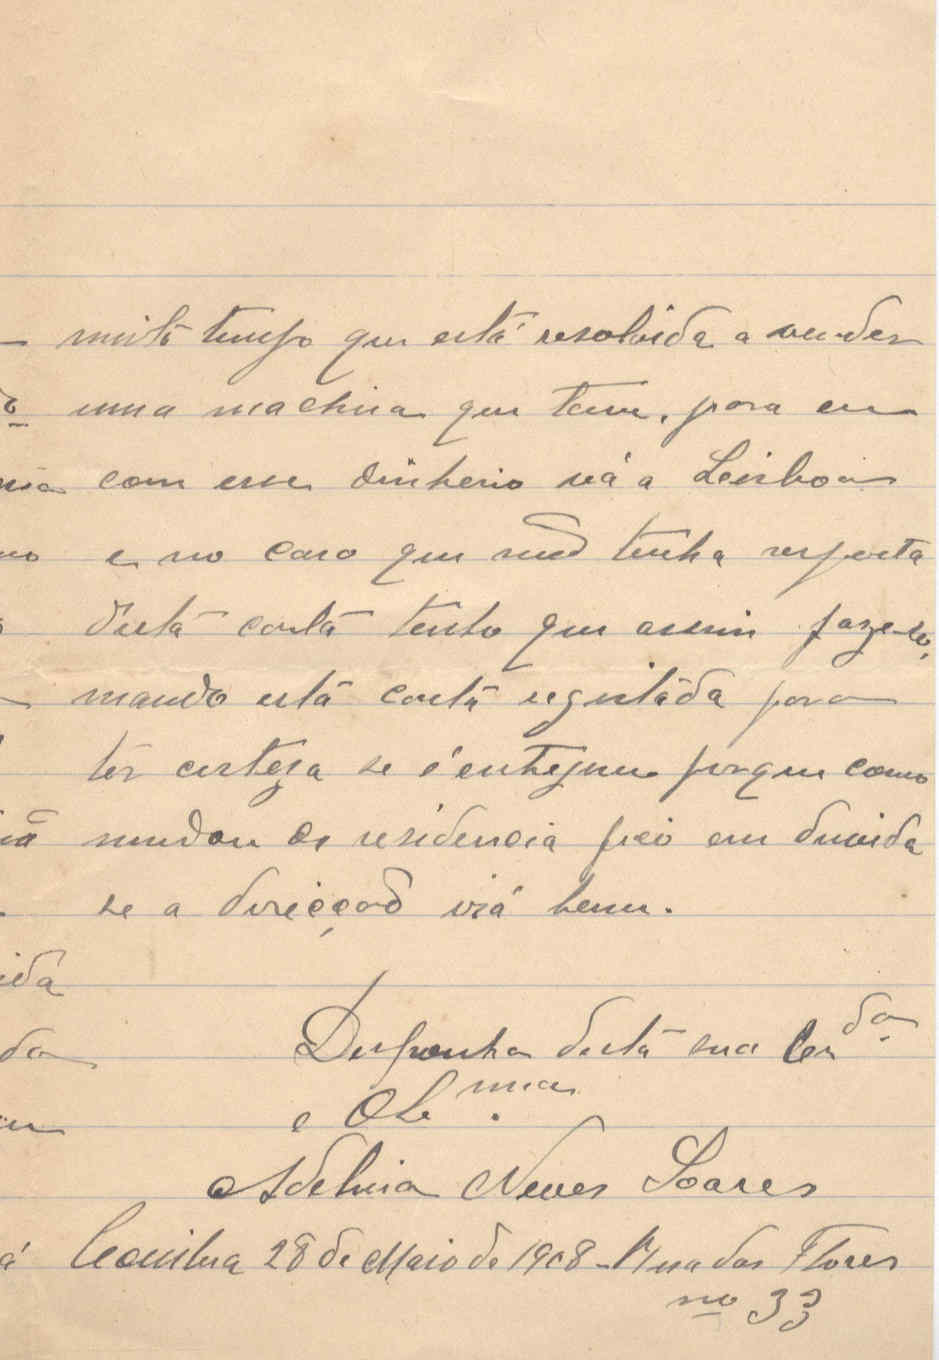 muito tempo que está resolvida a vender
uma machina que tem, para eu
com esse dinheiro vá a Leisboa
e no caso que não tenha resposta
desta carta tenho que assim faze-lo,
mando esta carta registada para
ter certeza se é entregue porque como
mudou de residencia fico em duvida
se a direcçaõ irá bem.
ida
da
Desponha desta sua Cr.da
e Ob.ma
Adelina Neves Soares
Coimbra 28 de Maio de 1908 - Rua das Flores
no 33